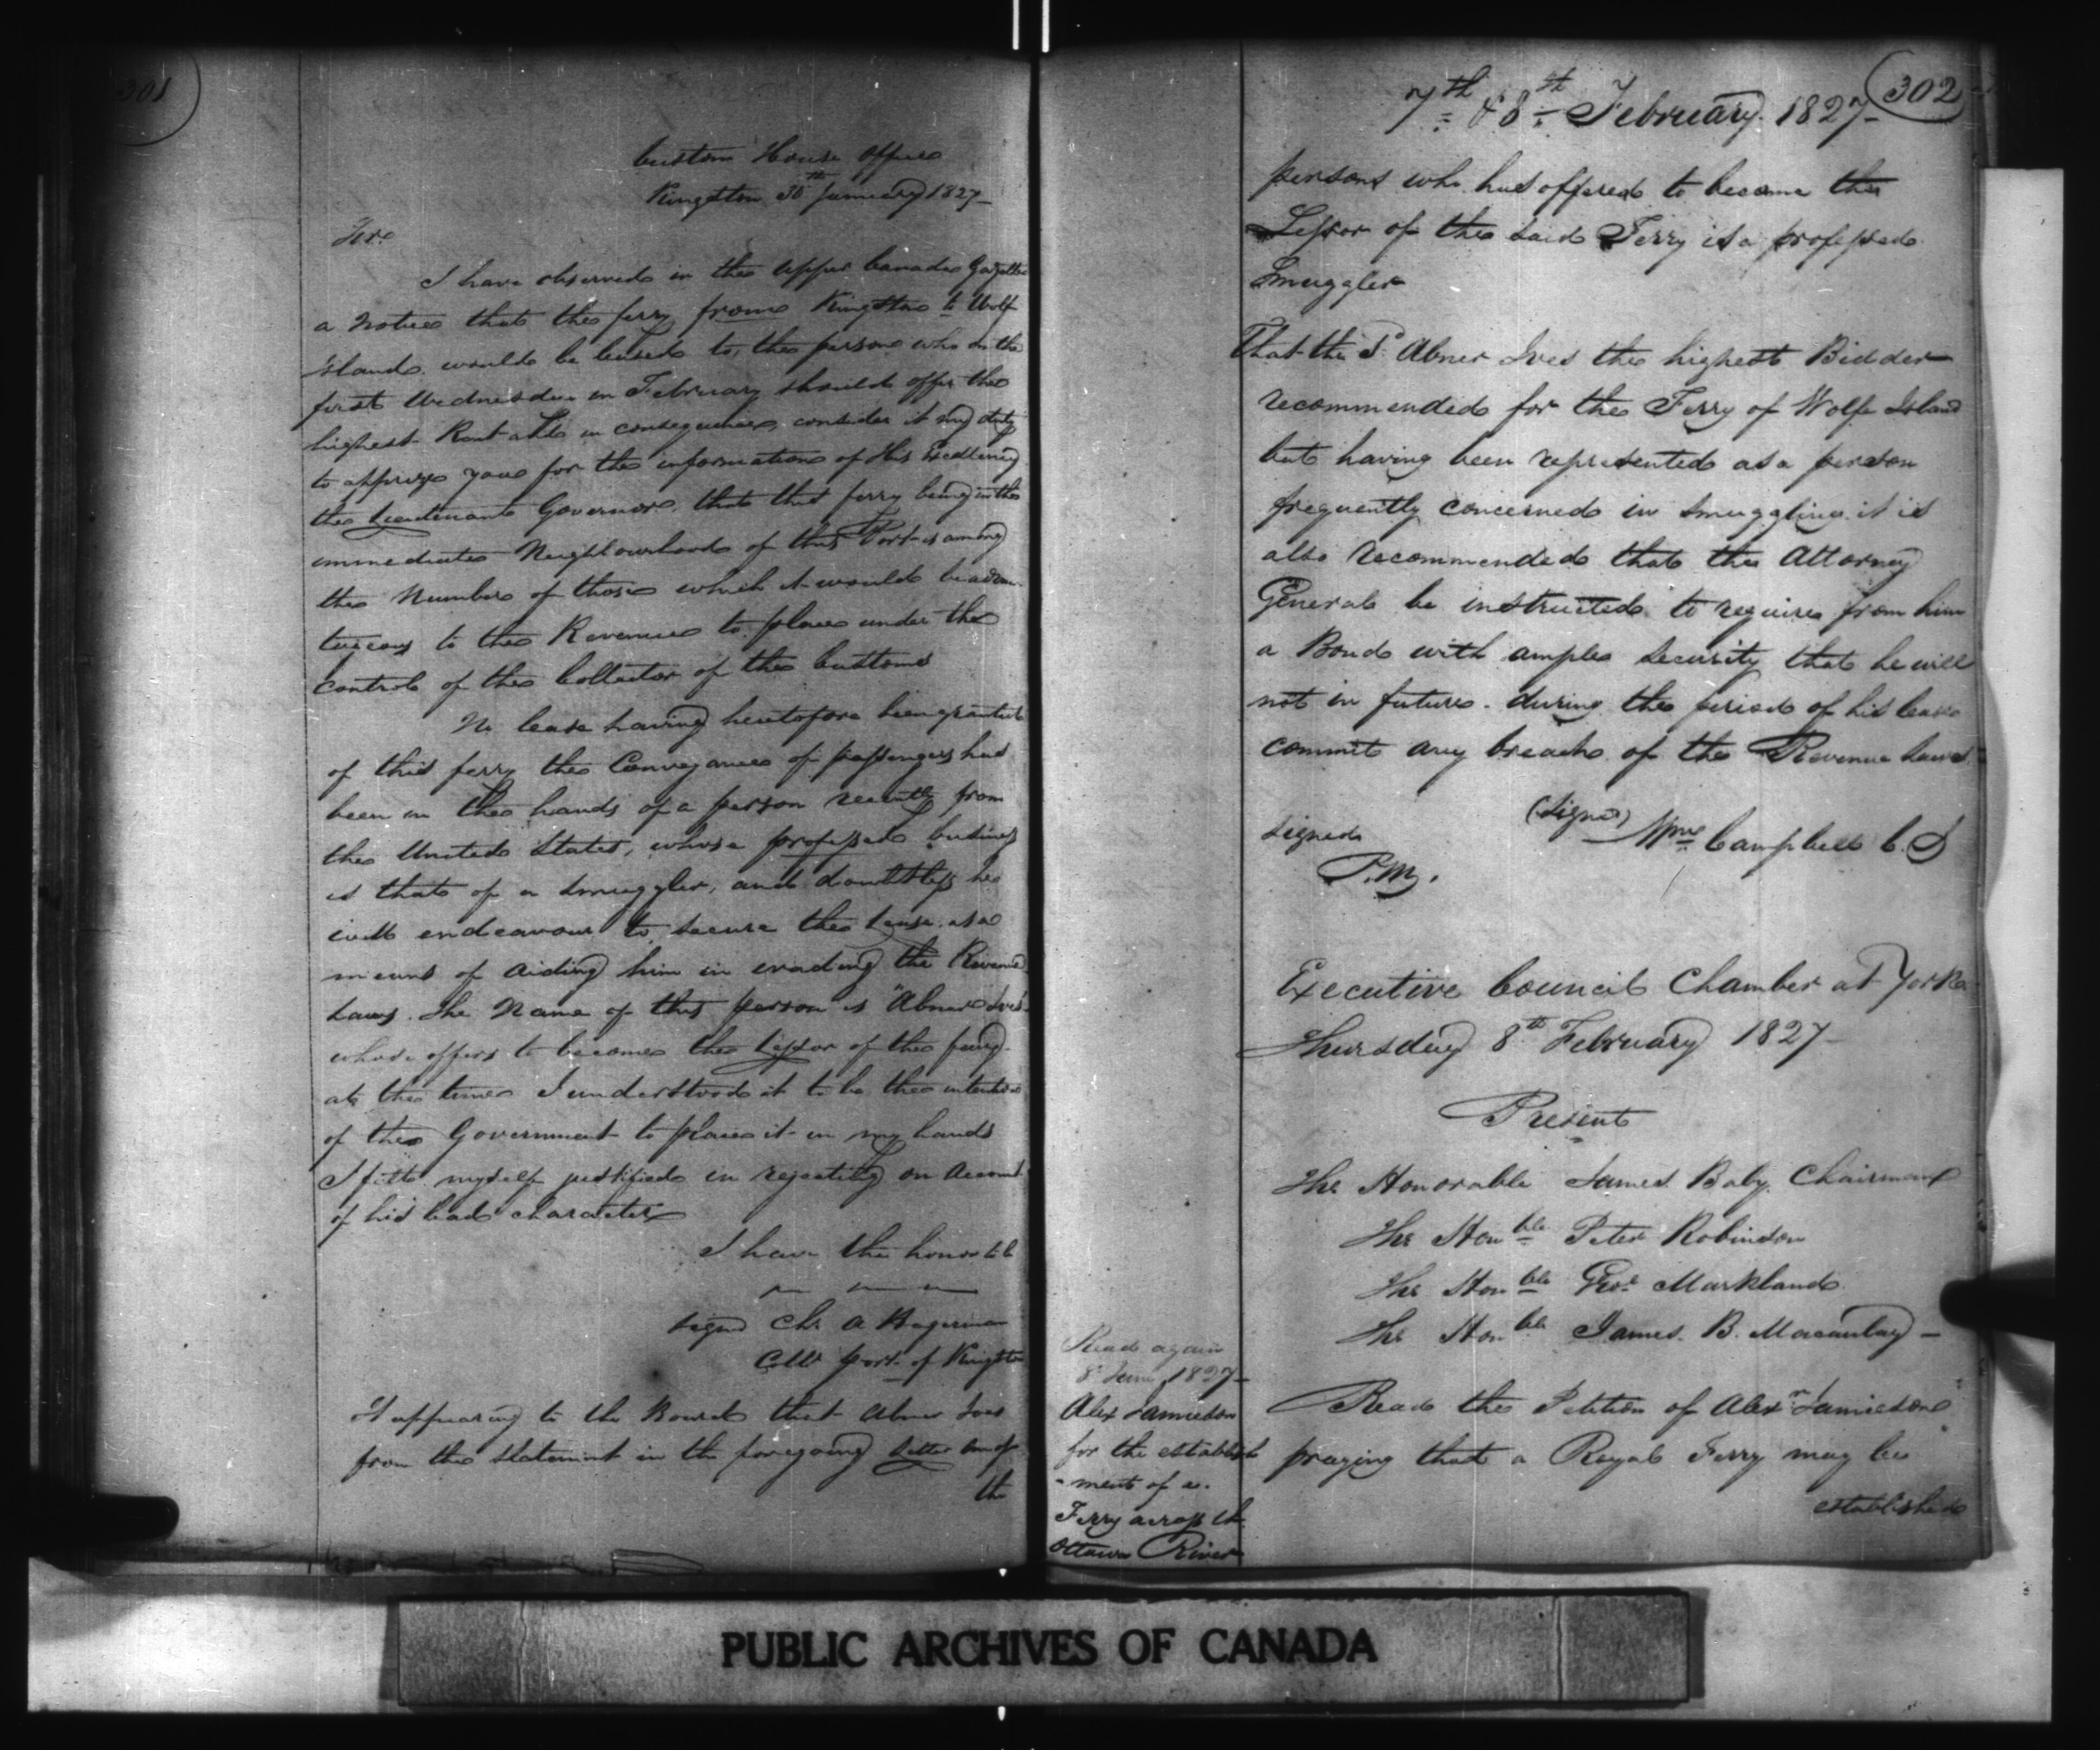 301
Custom House office
Kingston 30th January 1827
Sir
I have observed in the Upper Canada Gazette
a notice that the ferry from Kingston to Wolf
Island would be leased to the person who on the
first Wednesday in February should offer the
highest Rent and in consequence, consider it my duty
to apprize you for the information of His Excellency
the Lieutenant Governor, that that ferry being in the
immediate Neighbourhood of this Port is among
the Number of those which it would be advan-
tageous to the Revenue to place under the
control of the Collector of the Customs
No lease having heretofore been granted
of this ferry the Conveyance of passengers has
been in the hands of a person recently from
the United States, whose professed business
is that of a smuggler, and doubtless he
will endeavour to secure the Lease as a
means of aiding him in evading the Revenue
Laws. The Name of this person is "Abner Ives"
whose offers to become the Lessor of the ferry
at the time I understood it to be the intention
of the Government to place it in my hands
I felt myself justified in rejecting on account
of his bad character
I have the honor to be
signed Chr A Hagerman
Collr Port of Kingston
It appearing to the Board that Abner Ives
from the statement in the foregoing letter one of
the
302
7th & 8th February 1827
persons who had offered to become the
Lessor of the said Ferry is a professed
Smuggler
That the Sd Abner Ives the highest Bidder
recommended for the Ferry of Wolfe Island
but having been represented as a person
frequently concerned in smuggling it is
also recommended that the Attorney
General be instructed to require from him
a Bond with ample security that he will
not in future during the period of his lease
commit any breach of the Revenue Laws
(Signed) Wm Campbell C.J
signed
P.M.
Executive Council Chamber at York
Thursday 8th February 1827
Present
The Honorable James Baby Chairman
The Honble Peter Robinson
The Honble Geo. Markland
The Honble James B. Macaulay
Read again
8 June 1827
Alex Jamieson
for the establish
-ment of a
Ferry across the
Ottawa River
Read the Petition of Alexr Jamieson
praying that a Royal Ferry may be
established
PUBLIC ARCHIVES OF CANADA